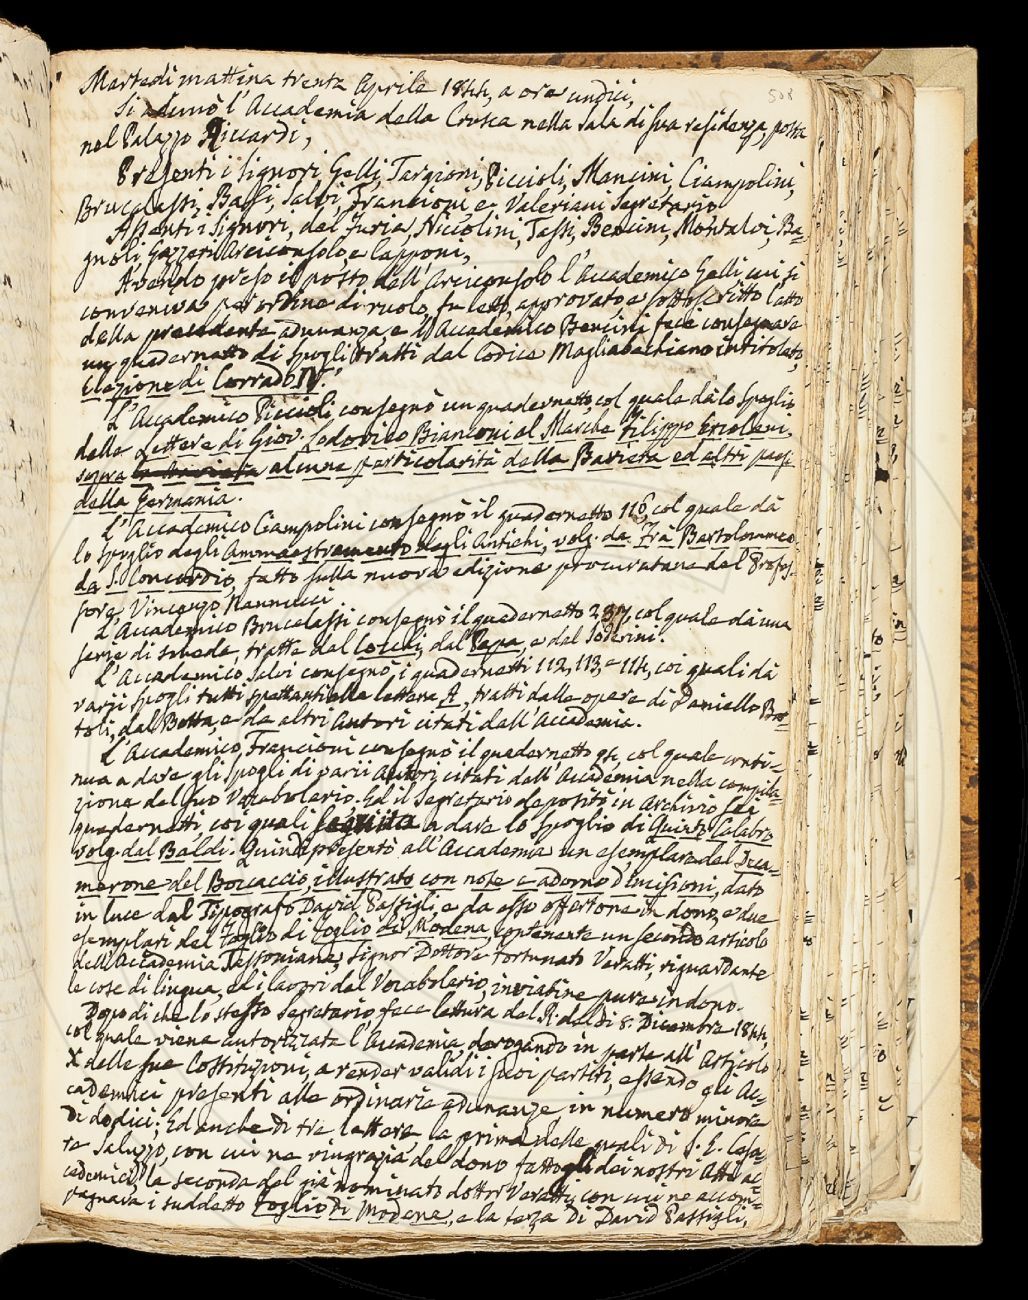 508
Martedì mattina trenta Aprile 1844, a ore undici,
Si adunò l'Accademia della Crusca nella sala di sua residenza, posta
nel Palazzo Riccardi,
Presenti i Signori Gelli, Targioni, Piccioli, Mancini, Ciampolini,
Brucalassi, Bassi, Salvi, Francioni e Valeriani Segretario
Assenti i Signori, del Furia, Niccolini, Tassi, Bencini, Montalvi, Ba=
gnoli, Gazzeri Arciconsolo e Capponi,
Avendo preso il posto dell'Arciconsolo l'Accademico Gelli cui si
conveniva per ordine di ruolo, fu letto, approvato e sottoscritto l'atto
della precedente adunanza, e l'Accademico Bencini fece consegnare
un quadernetto di spogli tratti dal Codice Magliabechiano intitolato,
Elezione di Corrado IV.
L'Accademico Piccioli consegnò un quadernetto, col quale dà lo spoglio
delle Lettere di Giov. Lodovico Bianconi al Marche Filippo Ercolani,
sopra la Baviera alcune particolarità della Baviera ed altri paesi
della Germania.
L'Accademico Ciampolini consegnò il quadernetto 116, col quale dà
lo spoglio degli Ammaestramento degli Antichi, volg. da Frà Bartolommeo
da S. Concordio, fatto sulla nuova edizione procuratane dal Profes-
sore, Vincenzo Nannucci
L'Accademico Brucalassi consegnò il quadernetto 237, col quale dà una
serie di schede, tratte dal Cocchi, dal Papa, e dal Soderini.
L'Accademico Salvi consegnò, i quadernetti 112, 113, e 114, coi quali dà
varii spogli tutti spettanti alla lettera A, tratti dalle opere di Daniello Bar=
toli, dal Botta, e da altri Autori citati dall'Accademia.
L'Accademico, Francioni consegnò il quadernetto 94, col quale conti-
nua a dare gli spogli di varii Autori, citati dall'Accademia nella compila-
zione del suo Vocabolario. Ed il Segretario depositò in Archivio sei
quadernetti, coi quali seguita a dare lo spoglio di Quinto Calabro
volg. dal Baldi. Quindi presentò all'Accademia un esemplare del Deca=
merone del Boccaccio, illustrato con note e adorno d'incisioni, dato
in luce dal Tipografo David Passigli, e da esso offertone in dono, e due
esemplari del Foglio di foglio di Modena, contenente un secondo articolo
dell'Accademia Tassoniana, Signor Dottore Fortunato Veratti, riguardante
le cose di lingua, ed i lavori del Vocabolario, inviatine pure in dono.
Dopo di che lo stesso Segretario fece lettura del R. del dì 8. Dicembre 1844,
col quale viene autorizzata l'Accademia, derogando in parte all'Articolo
X delle sue Costituzioni, a render validi i suoi partiti, essendo gli Ac-
cademici presenti alle ordinarie adunanze, in numero minore
di dodici; Ed anche di tre lettere, la prima delle quali di S. E. Cesa-
re Saluzzo, con cui ne ringrazia del dono fattogli dei nostri Atti ac-
cademici, la seconda del già nominato dottor Veratti, con cui ne accom-
pagnava i suddetto foglio di Modena, e la terza di David Passigli,